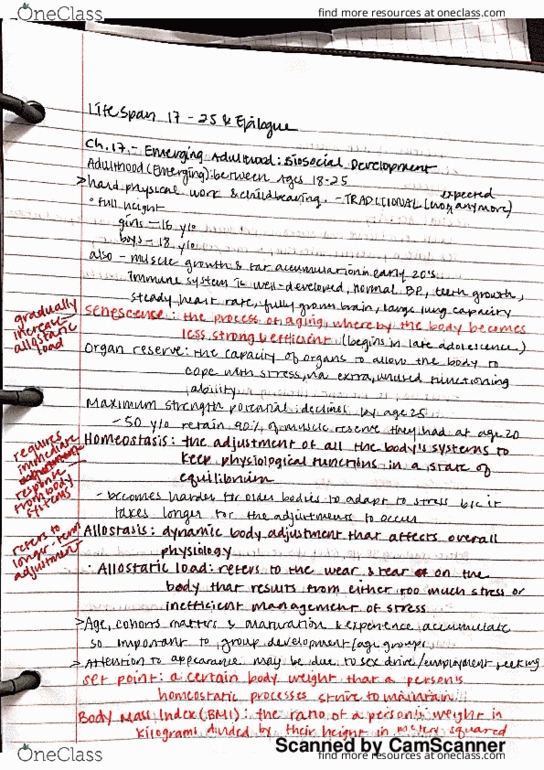 OneClass
find more resources at oneclass.com
Life Span 17 - 25 & Epilogue
Ch. 17. - Emerging Adulthood: Biosocial Development
Adulthood (Emerging): between Ages 18-25
> hard physical work & childbearing. - TRADITIONAL (not expected anymore)
• full height
girls - 16 y/o
boys - 18 y/o
also - muscle growth & fat accumulation in early 20's
immune system is well-developed, normal BP, teeth growth,
steady heart rate, fully grown brain, large lung capacity
gradually
increase
allostatic
load
senescence: the process of aging, whereby the body becomes
less strong & efficient (begins in late adolescence)
Organ reserve: the capacity of organs to allow the body to
cope with stress, via extra, unused functioning
ability
Maximum strength potential declines by age 25
- 50 y/o retain 90% of muscle reserve they had at age 20
requires
immediate
response
from body
systems
Homeostasis: the adjustment of all the body's systems to
keep physiological functions in a state of
equilibrium
- becomes harder for older bodies to adapt to stress b/c it
takes longer for the adjustments to occur
refers to
longer-term
adjustment
Allostasis: dynamic body adjustment that affects overall
physiology
• Allostatic load: refers to the wear & tear on the
body that results from either too much stress or
inefficient management of stress
> Age, cohorts matters & maturation & experience accumulate
so important to group development/age groups
> Attention to appearance may be due to sex drive/employment seeking
set point: a certain body weight that a person's
homeostatic processes strive to maintain
Body Mass Index (BMI): the ratio of a person's weight in
kilograms divided by their height in meters squared
Scanned by CamScanner
OneClass
find more resources at oneclass.com